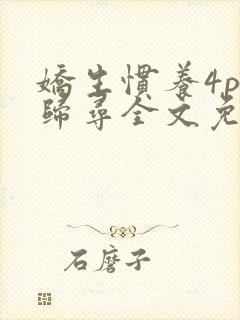 嬌生慣養4p
歸尋全文免
石磨子